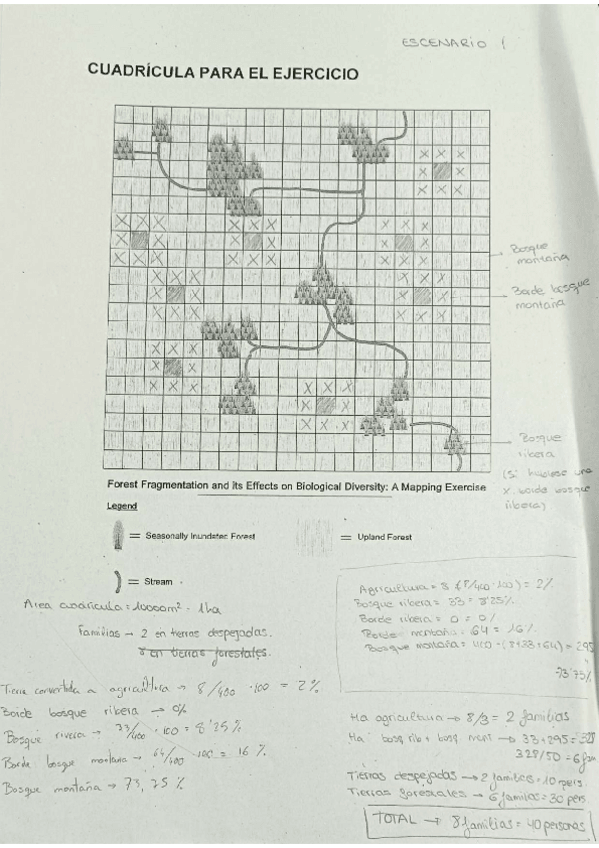 ESCENARIO 1
CUADRÍCULA PARA EL EJERCICIO
Bosque
montaña
Borde bosque
montaña
Bosque
ribera
(Si hubiese una
x borde bosque
ribera)
Forest Fragmentation and its Effects on Biological Diversity: A Mapping Exercise
Legend
= Seasonally Inundated Forest
= Upland Forest
= Stream
Area cuadricula = 10000m² · 1ha
Familias → 2 en tierras despejadas.
en tierras forestales.
Tierra convertida a agricultura → 8/400 · 100 = 2%
Borde bosque ribera → 0%
Bosque rivera → 33/400 · 100 = 8'25%
Borde bosque montaña → 64/400 · 100 = 16 %
Bosque montaña → 73,75 %
Agricultura = 8 (8/400 · 100) = 2%
Bosque ribera = 33 = 8'25%
Borde ribera = 0 = 0%
Borde montaña = 64 = 16%
Bosque montaña = 400 - (8+33+64) = 295
73'75%
Ha agricultura → 8/3 = 2 familias
Ha bosq rib + bosq mont → 33+295 = 328
328/50 = 6 fam
Tierras despejadas → 2 familias = 10 pers.
Tierras forestales → 6 familias = 30 pers
TOTAL → 8 familias = 40 personas